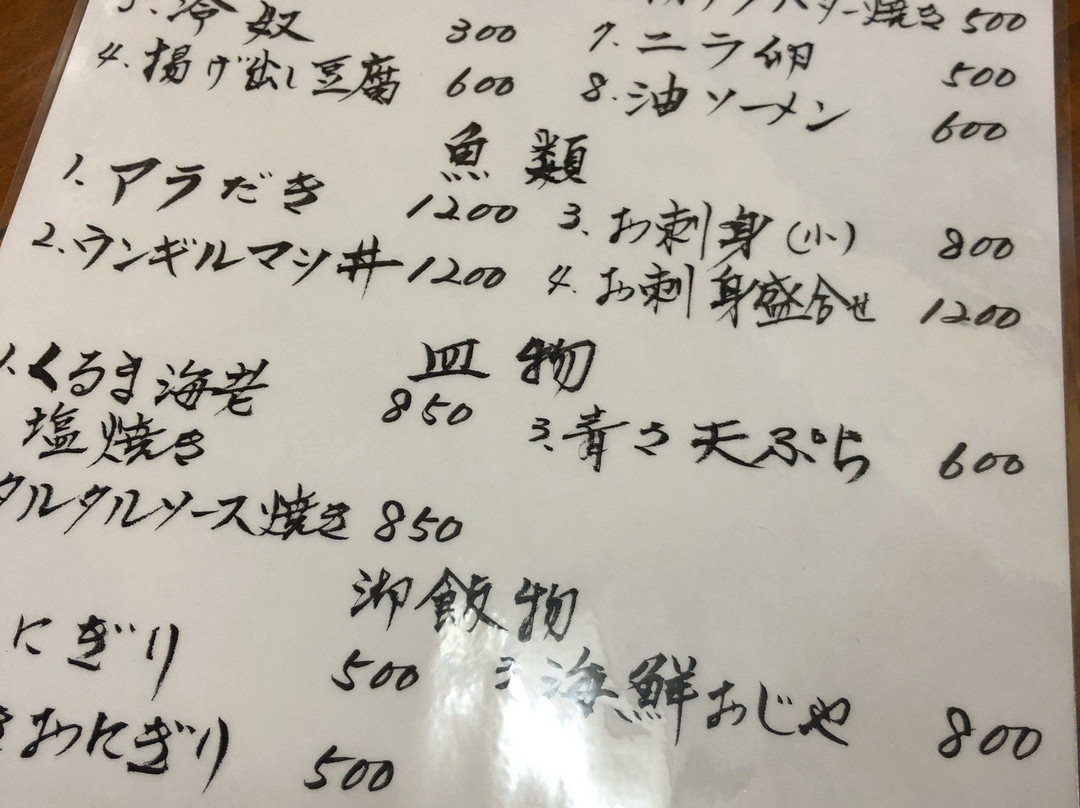 3. 冷奴 300
4. 揚げ出し豆腐 600
焼き 500
7. ニラ卵 500
8. 油ソーメン 600
魚類
1. アラだき 1200
2. ウンギルマシ丼 1200
3. お刺身(小) 800
4. お刺身盛合せ 1200
皿物
1. くるま海老
塩焼き 850
タルタルソース焼き 850
3. 青さ天ぷら 600
御飯物
にぎり 500
おにぎり 500
3. 海鮮おじや 800